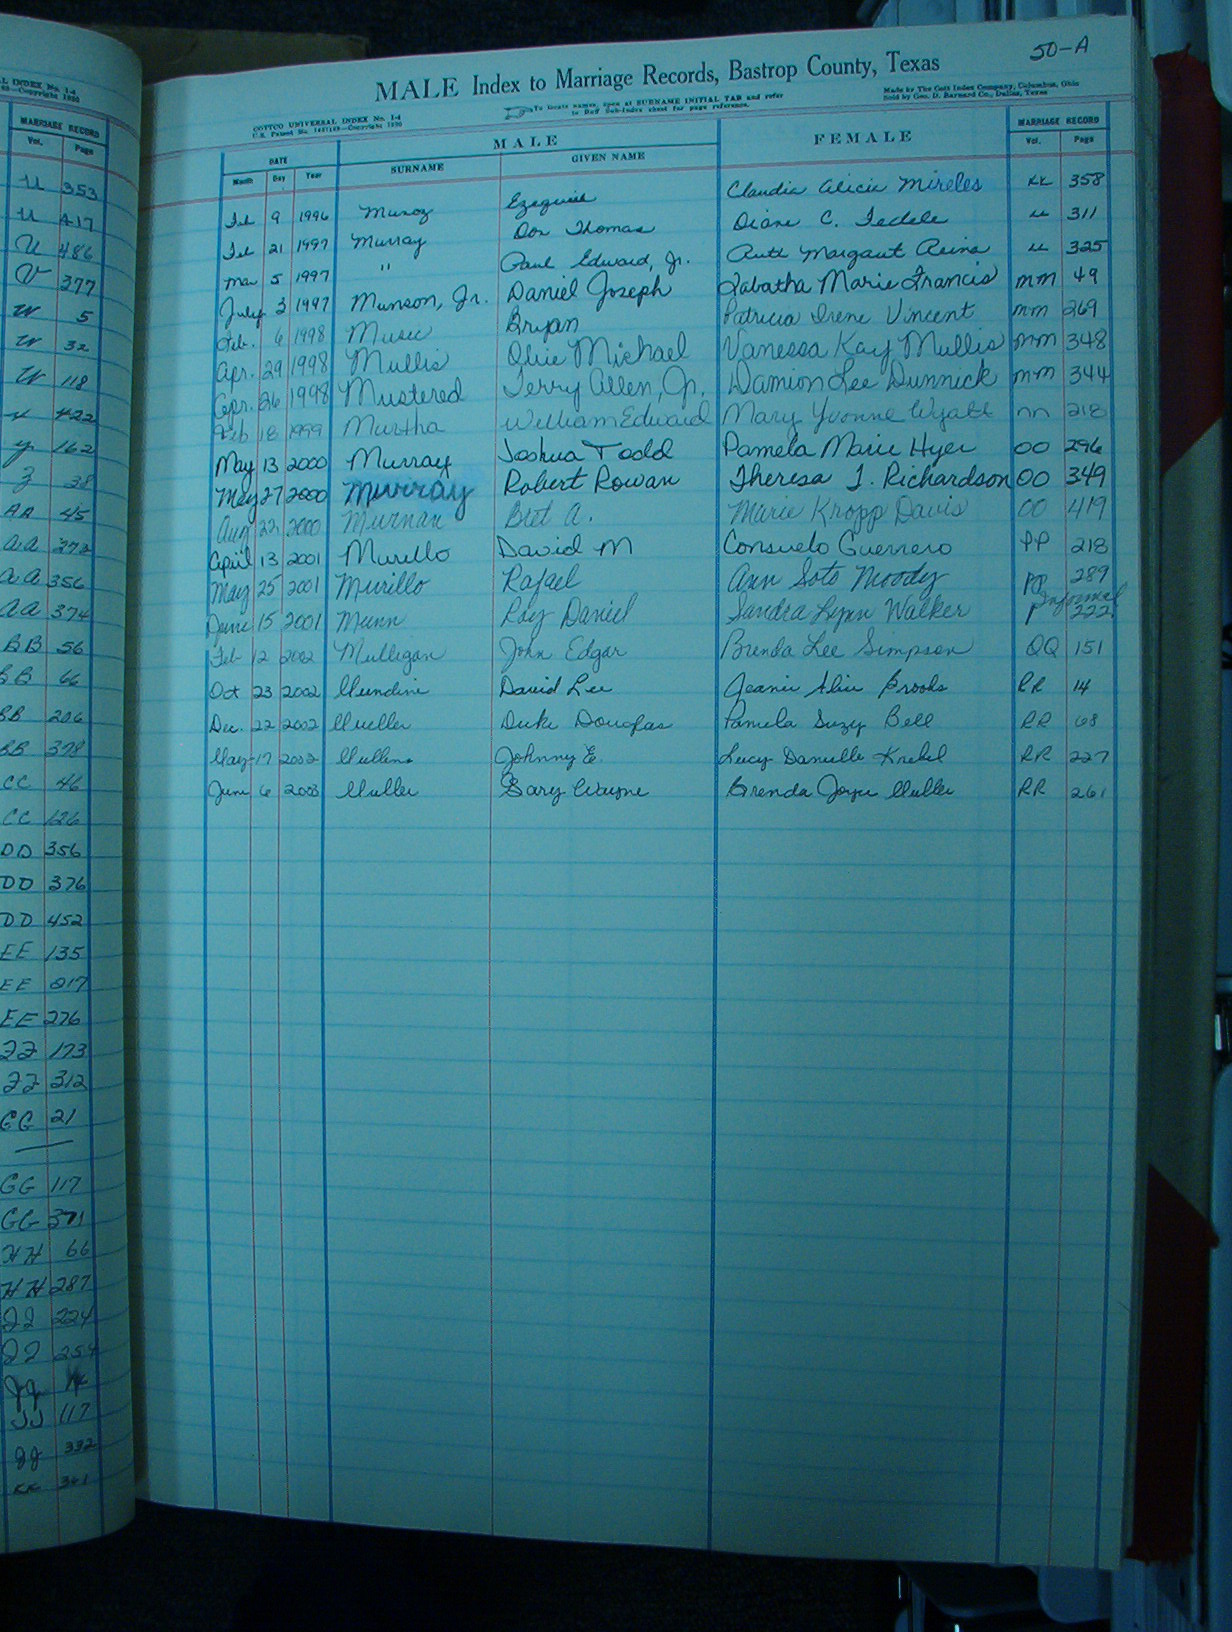 L INDEX No. 1-4
MARRIAGE RECORD
Vol. Page
U 353
U 417
U 486
V 377
W 5
W 32
W 118
422
y 162
Z 38
AA 45
AA 273
AA 356
AA 374
BB 56
BB 66
BB 206
BB 378
CC 46
CC 126
DD 356
DD 376
DD 452
EE 135
EE 217
EE 276
FF 173
FF 312
GG 21
GG 117
GG 371
HH 66
HH 287
224
254
JJ 117
JJ 332
KK 341
50-A
MALE Index to Marriage Records, Bastrop County, Texas
COTTCO UNIVERSAL INDEX No. 1-4
To locate names, open at SURNAME INITIAL TAB and refer
to Buff Sub-Index sheet for page reference.
Made by The Cott Index Company, Columbus, Ohio
Sold by Geo. D. Barnard Co., Dallas, Texas
DATE MALE FEMALE MARRIAGE RECORD
Month Day Year SURNAME GIVEN NAME Vol. Page
Feb 9 1996 Munoz Ezequiel Claudia Alicia Mireles KK 358
Feb 21 1997 Murray Don Thomas Diane C. Fedele LL 311
Mar 5 1997 " Paul Edward, Jr. Ruth Margaret 325
July 3 1997 Munson, Jr. Daniel Joseph Tabatha Marie Francis MM 49
Feb. 6 1998 Music Bryan Patricia Irene Vincent MM 269
Apr. 29 1998 Mullis Olie Michael Vanessa Kay Mullis MM 348
Apr. 26 1998 Mustered Terry Allen, Jr. Damion Lee Dunnick MM 344
Feb 18 1999 Murtha William Edward Mary Yvonne Wyatt NN 218
May 13 2000 Murray Joshua Todd Pamela Marie Hyer OO 296
May 27 2000 Murray Robert Rowan Theresa J. Richardson OO 349
Aug 22 2000 Murnan Bret A. Marie Kropp Davis OO 419
April 13 2001 Murillo David M Consuelo Guerrero PP 218
May 25 2001 Murillo Rafael Ann Soto Moody PP 289
June 15 2001 Munn Roy Daniel Sandra Lynn Walker Informal P 222
Feb 12 2002 Mulligan John Edgar Brenda Lee Simpson QQ 151
Oct 23 2002 Mundine David Lee Jeanie Alice Brooks RR 14
Dec. 22 2002 Mueller Duke Douglas Pamela Suzy Bell RR 68
May 17 2003 Mullins Johnny E. Lucy Danielle Knebel RR 227
June 6 2003 Muller Gary Wayne Brenda Joyce Muller RR 261